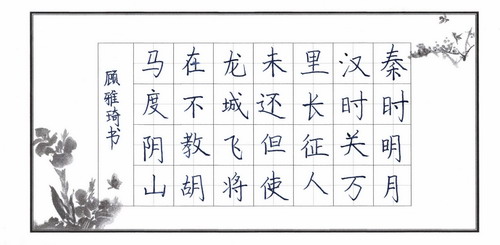 秦时明月
汉时关万
里长征人
未还但使
龙城飞将
在不教胡
马度阴山
顾雅琦书